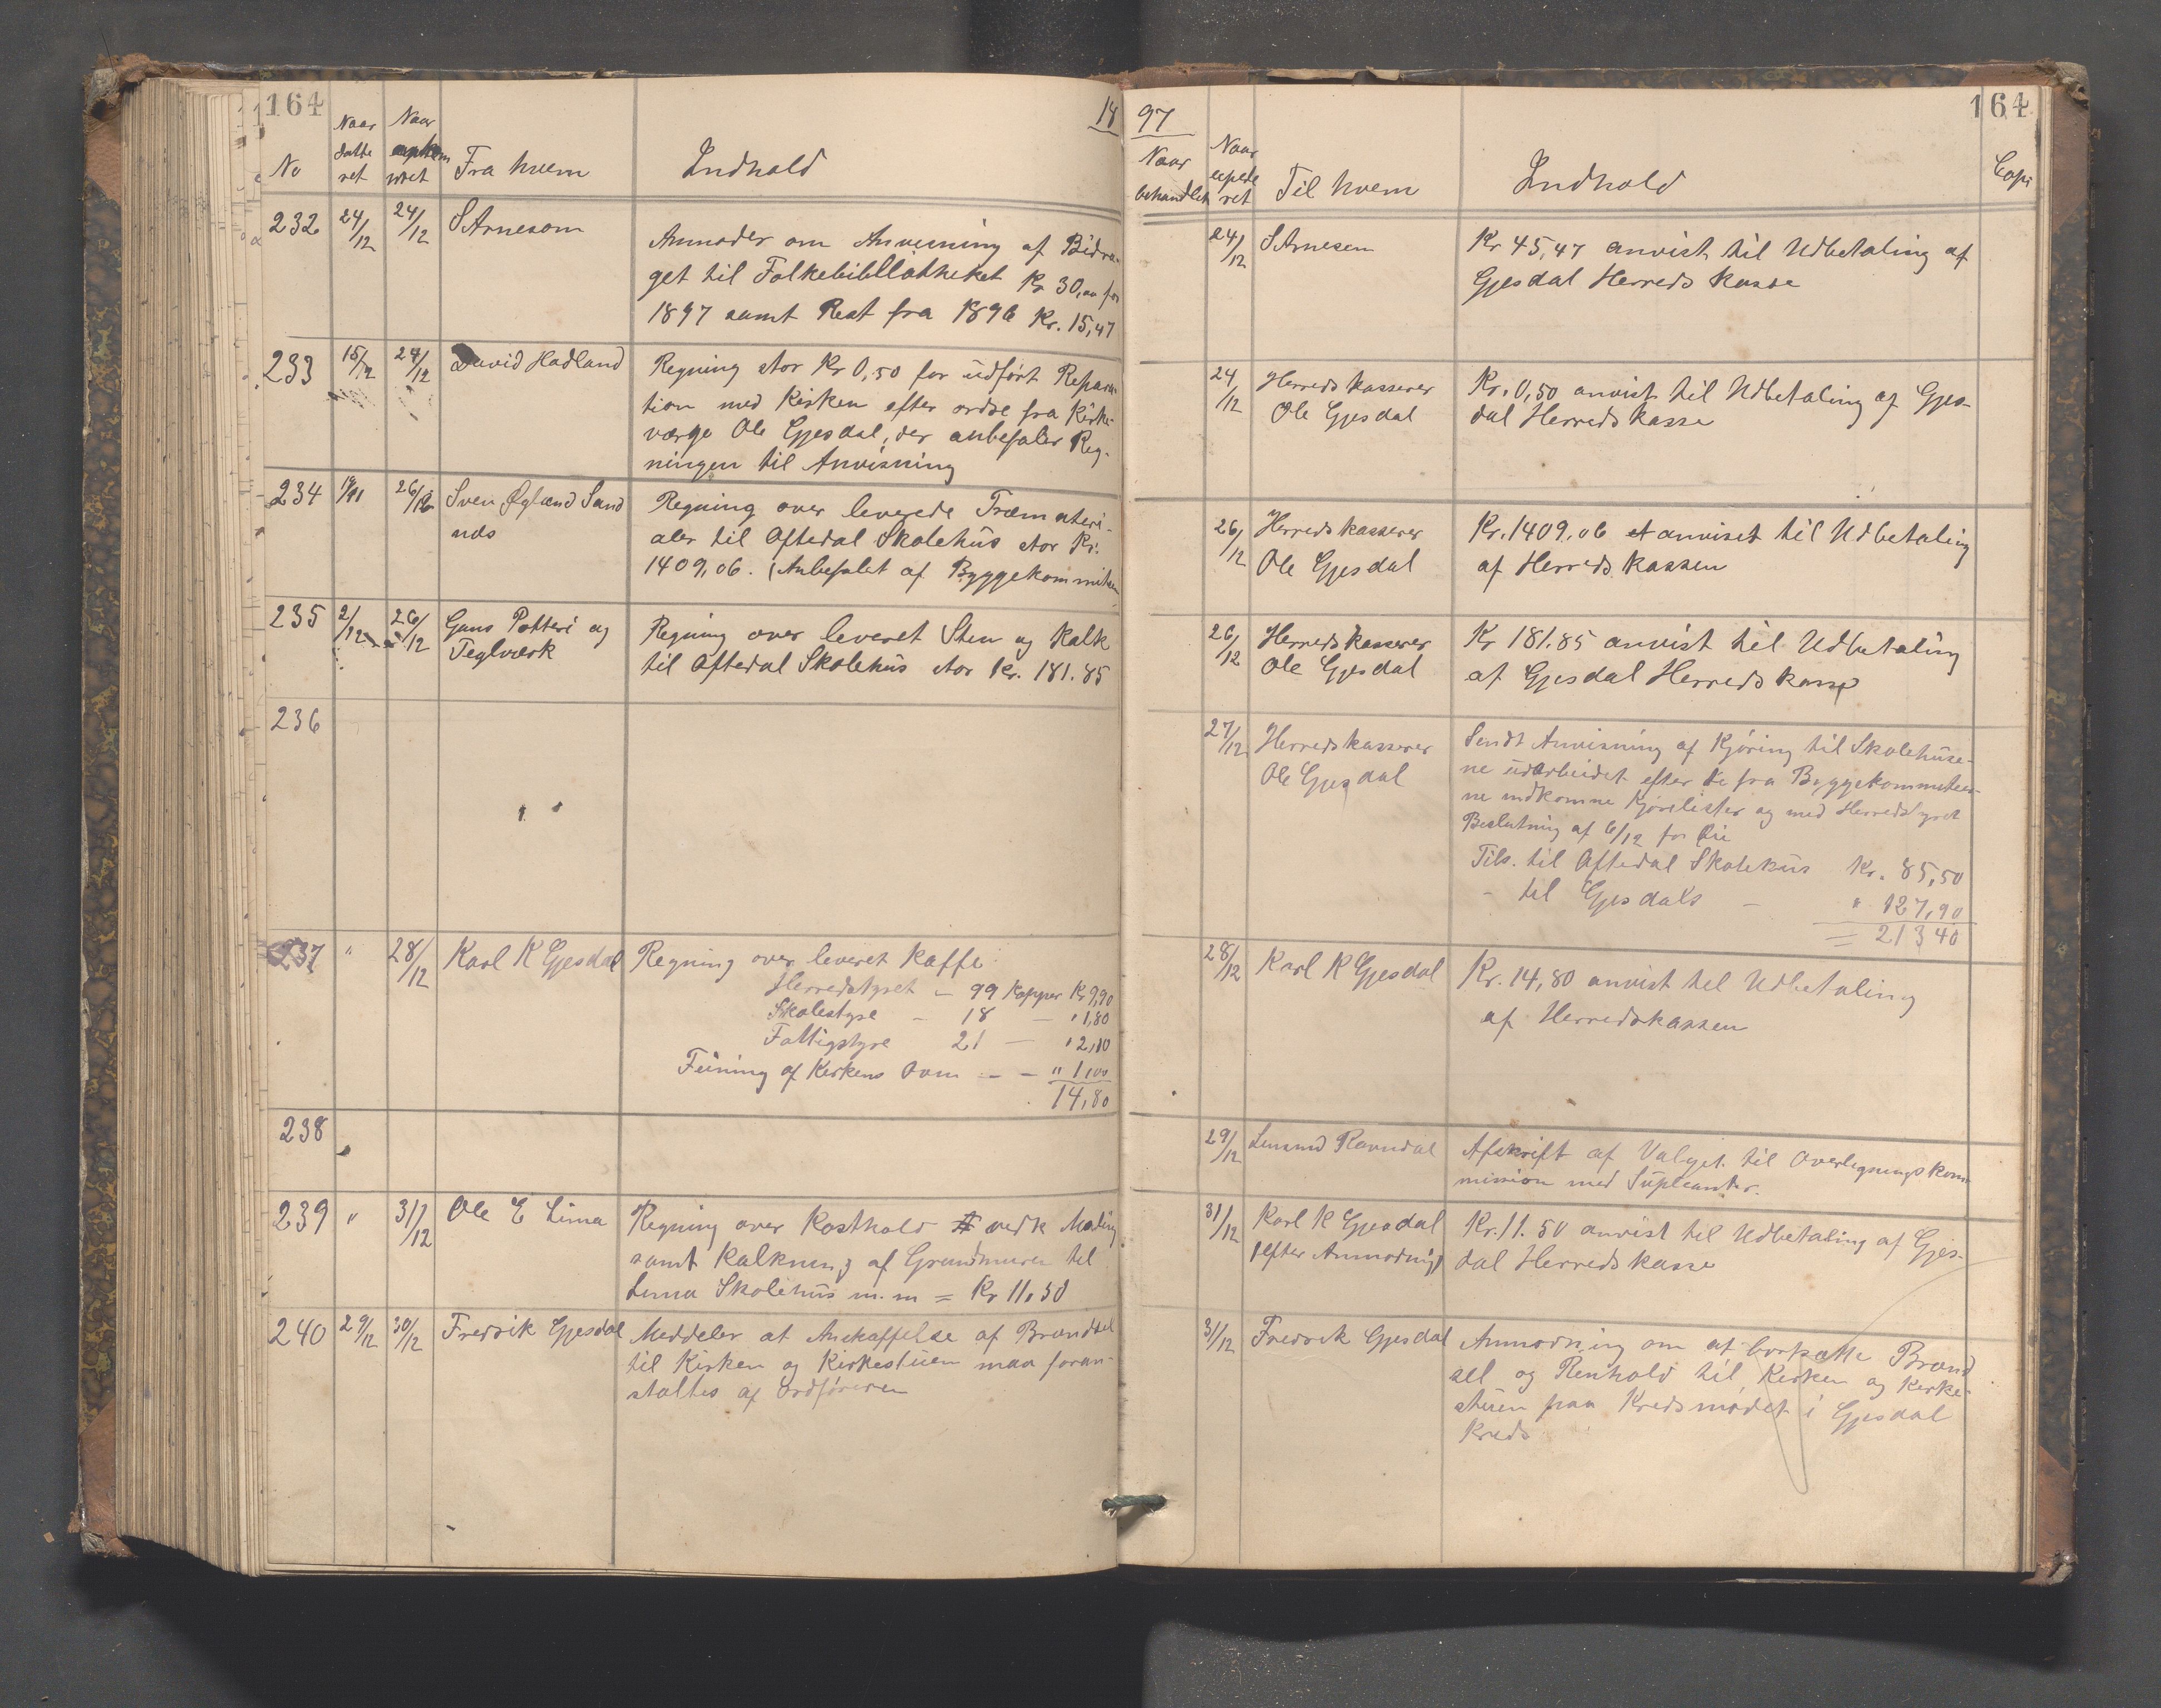 164
18
No
Naar datte ret
Naar wret
Fra hvem
Indhold
232
24/12
24/12
S Arnesom
Anmoder om Anvisning af Bidra-
get til Folkebibliotheket Kr 30,00 for
1897 samt Rest fra 1896 Kr. 15,47
233
15/12
24/12
David Hadland
Regning stor Kr 0,50 for udført Repara
tion med Kirken efter ordre fra Kirke-
værge Ole Gjesdal, der anbefaler Reg-
ningen til Anvisning
234
26/12
Sven Øgland Sand
nds
Regning over leverede Træmateri-
aler til Oftedal Skolehus stor Kr.
1409,06. (Anbefalet af Byggekommiteen
235
2/12
26/12
Gans Potteri og
Teglværk
Regning over leveret Sten og Kalk
til Oftedal Skolehus stor Kr. 181.85
236
237
"
28/12
Karl K Gjesdal
Regning over leveret Kaffe
Herredstyret - 99 Kopper Kr 9,90
Skolestyre - 18 - " 1,80
Fattigstyre 21 - " 2,10
Feining af Kirkens Ovn - - " 1,00
14,80
238
239
"
31/12
Ole E Lima
Regning over Kosthold vedk Maling
samt Kalkning af Grundmuren til
Lima Skolehus m.m = Kr 11,50
240
29/12
30/12
Fredrik Gjesdal
Meddeler at Anskaffelse af Brændsel
til Kirken og Kirkestuen maa foran-
staltes af Ordføreren
97
164
Naar behandlet
Naar expede ret
Til hvem
Indhold
Copi
24/12
S Arnesen
Kr 45,47 anvist til Udbetaling af
Gjesdal Herreds Kasse
24/12
Herreds kasserer
Ole Gjesdal
Kr. 0,50 anvist til Udbetaling af Gjes-
dal Herreds kasse
26/12
Herreds kasserer
Ole Gjesdal
Kr. 1409.06 et anviset til Udbetaling
af Herreds kassen
26/12
Herreds kasserer
Ole Gjesdal
Kr 181.85 anvist til Udbetaling
af Gjesdal Herreds kasse
27/12
Herreds kasserer
Ole Gjesdal
Sendt Anvisning af Kjøring til Skolehuse-
ne udarbeidet efter de fra Byggekommiteer-
ne indkomne Kjørelister og med Herredstyret
Beslutning af 6/12 for Øie
Tils. til Oftedal Skolehus Kr. 85,50
- til Gjesdals - " 127,90
= 213 40
28/12
Karl K Gjesdal
Kr. 14,80 anvist til Udbetaling
af Herredskassen
29/12
Ravndal
Afskrift af Valget til Overligningskom
mission med Supleanter.
31/12
Karl K Gjesdal
(efter Anmodning)
Kr. 11.50 anvist til Udbetaling af Gjes-
dal Herreds kasse
31/12
Fredrik Gjesdal
Anmodning om at bortsætte Brænd
sel og Renhold til Kirken og Kirke-
stuen paa Kredsmødet i Gjesdal
Kreds